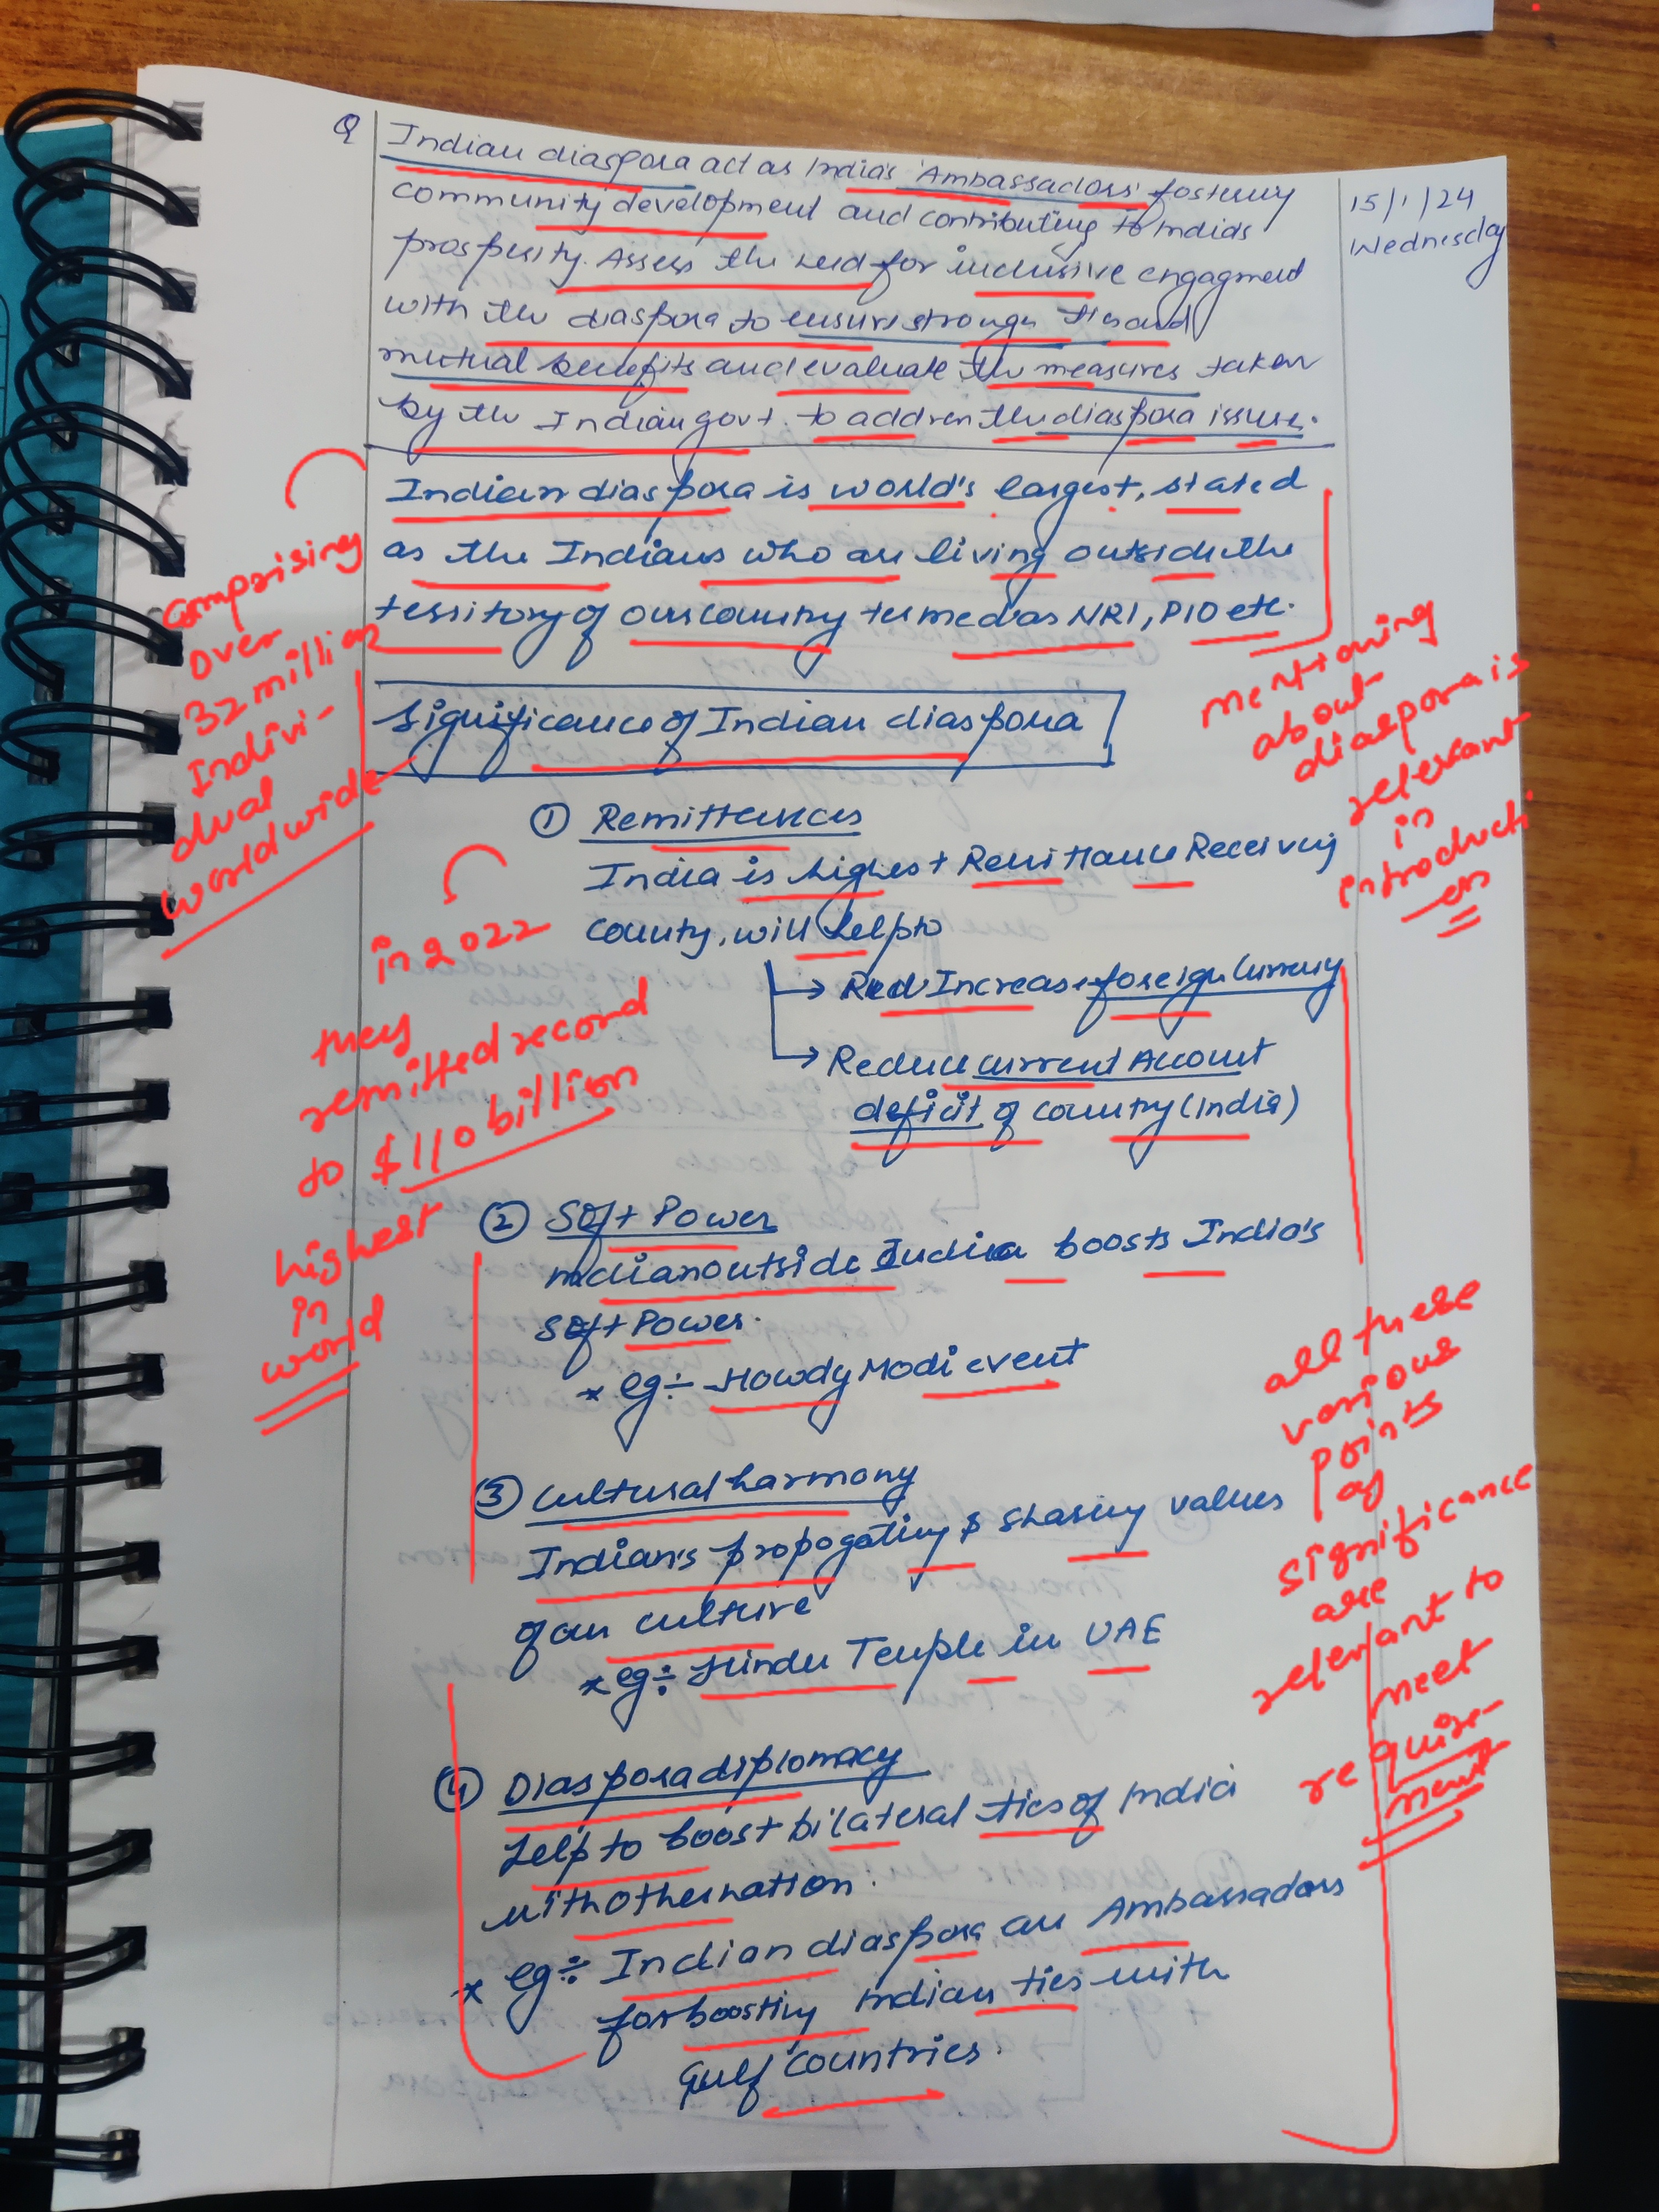 Q Indian diaspora act as India's 'Ambassadors' fostering
community development and contributing to India's
prosperity. Assess the need for inclusive engagment
with the diaspora to ensure stronger ties and
mutual benefits and evaluate the measures taken
by the Indian govt. to address the diaspora issues.
15/1/24
Wednesday
Indian diaspora is world's largest, stated
as the Indians who are living outside the
territory of our country termed as NRI, PIO etc.
comprising
over
32 million
Indivi-
dual
worldwide
mentioning
about
diaspora is
relevant
in
introducti
on
Significance of Indian diaspora
① Remittances
India is highest Remittance Receiving
county, will help to
→ Increase foreign Currency
→ Reduce current Account
deficit of country (India)
in 2022
they
remitted record
to $110 billion
highest
in
world
② Soft Power
Indian outside India boosts India's
Soft Power.
* eg ÷ Howdy Modi event
③ Cultural harmony
Indian's propogating & sharing values
of our culture
* eg ÷ Hindu Temple in UAE
④ Diaspora diplomacy
help to boost bilateral ties of India
with other nation.
* eg ÷ Indian diaspora are Ambassadors
for boosting Indian ties with
Gulf countries.
all these
various
points
of
significance
are
relevant to
meet
require-
ment